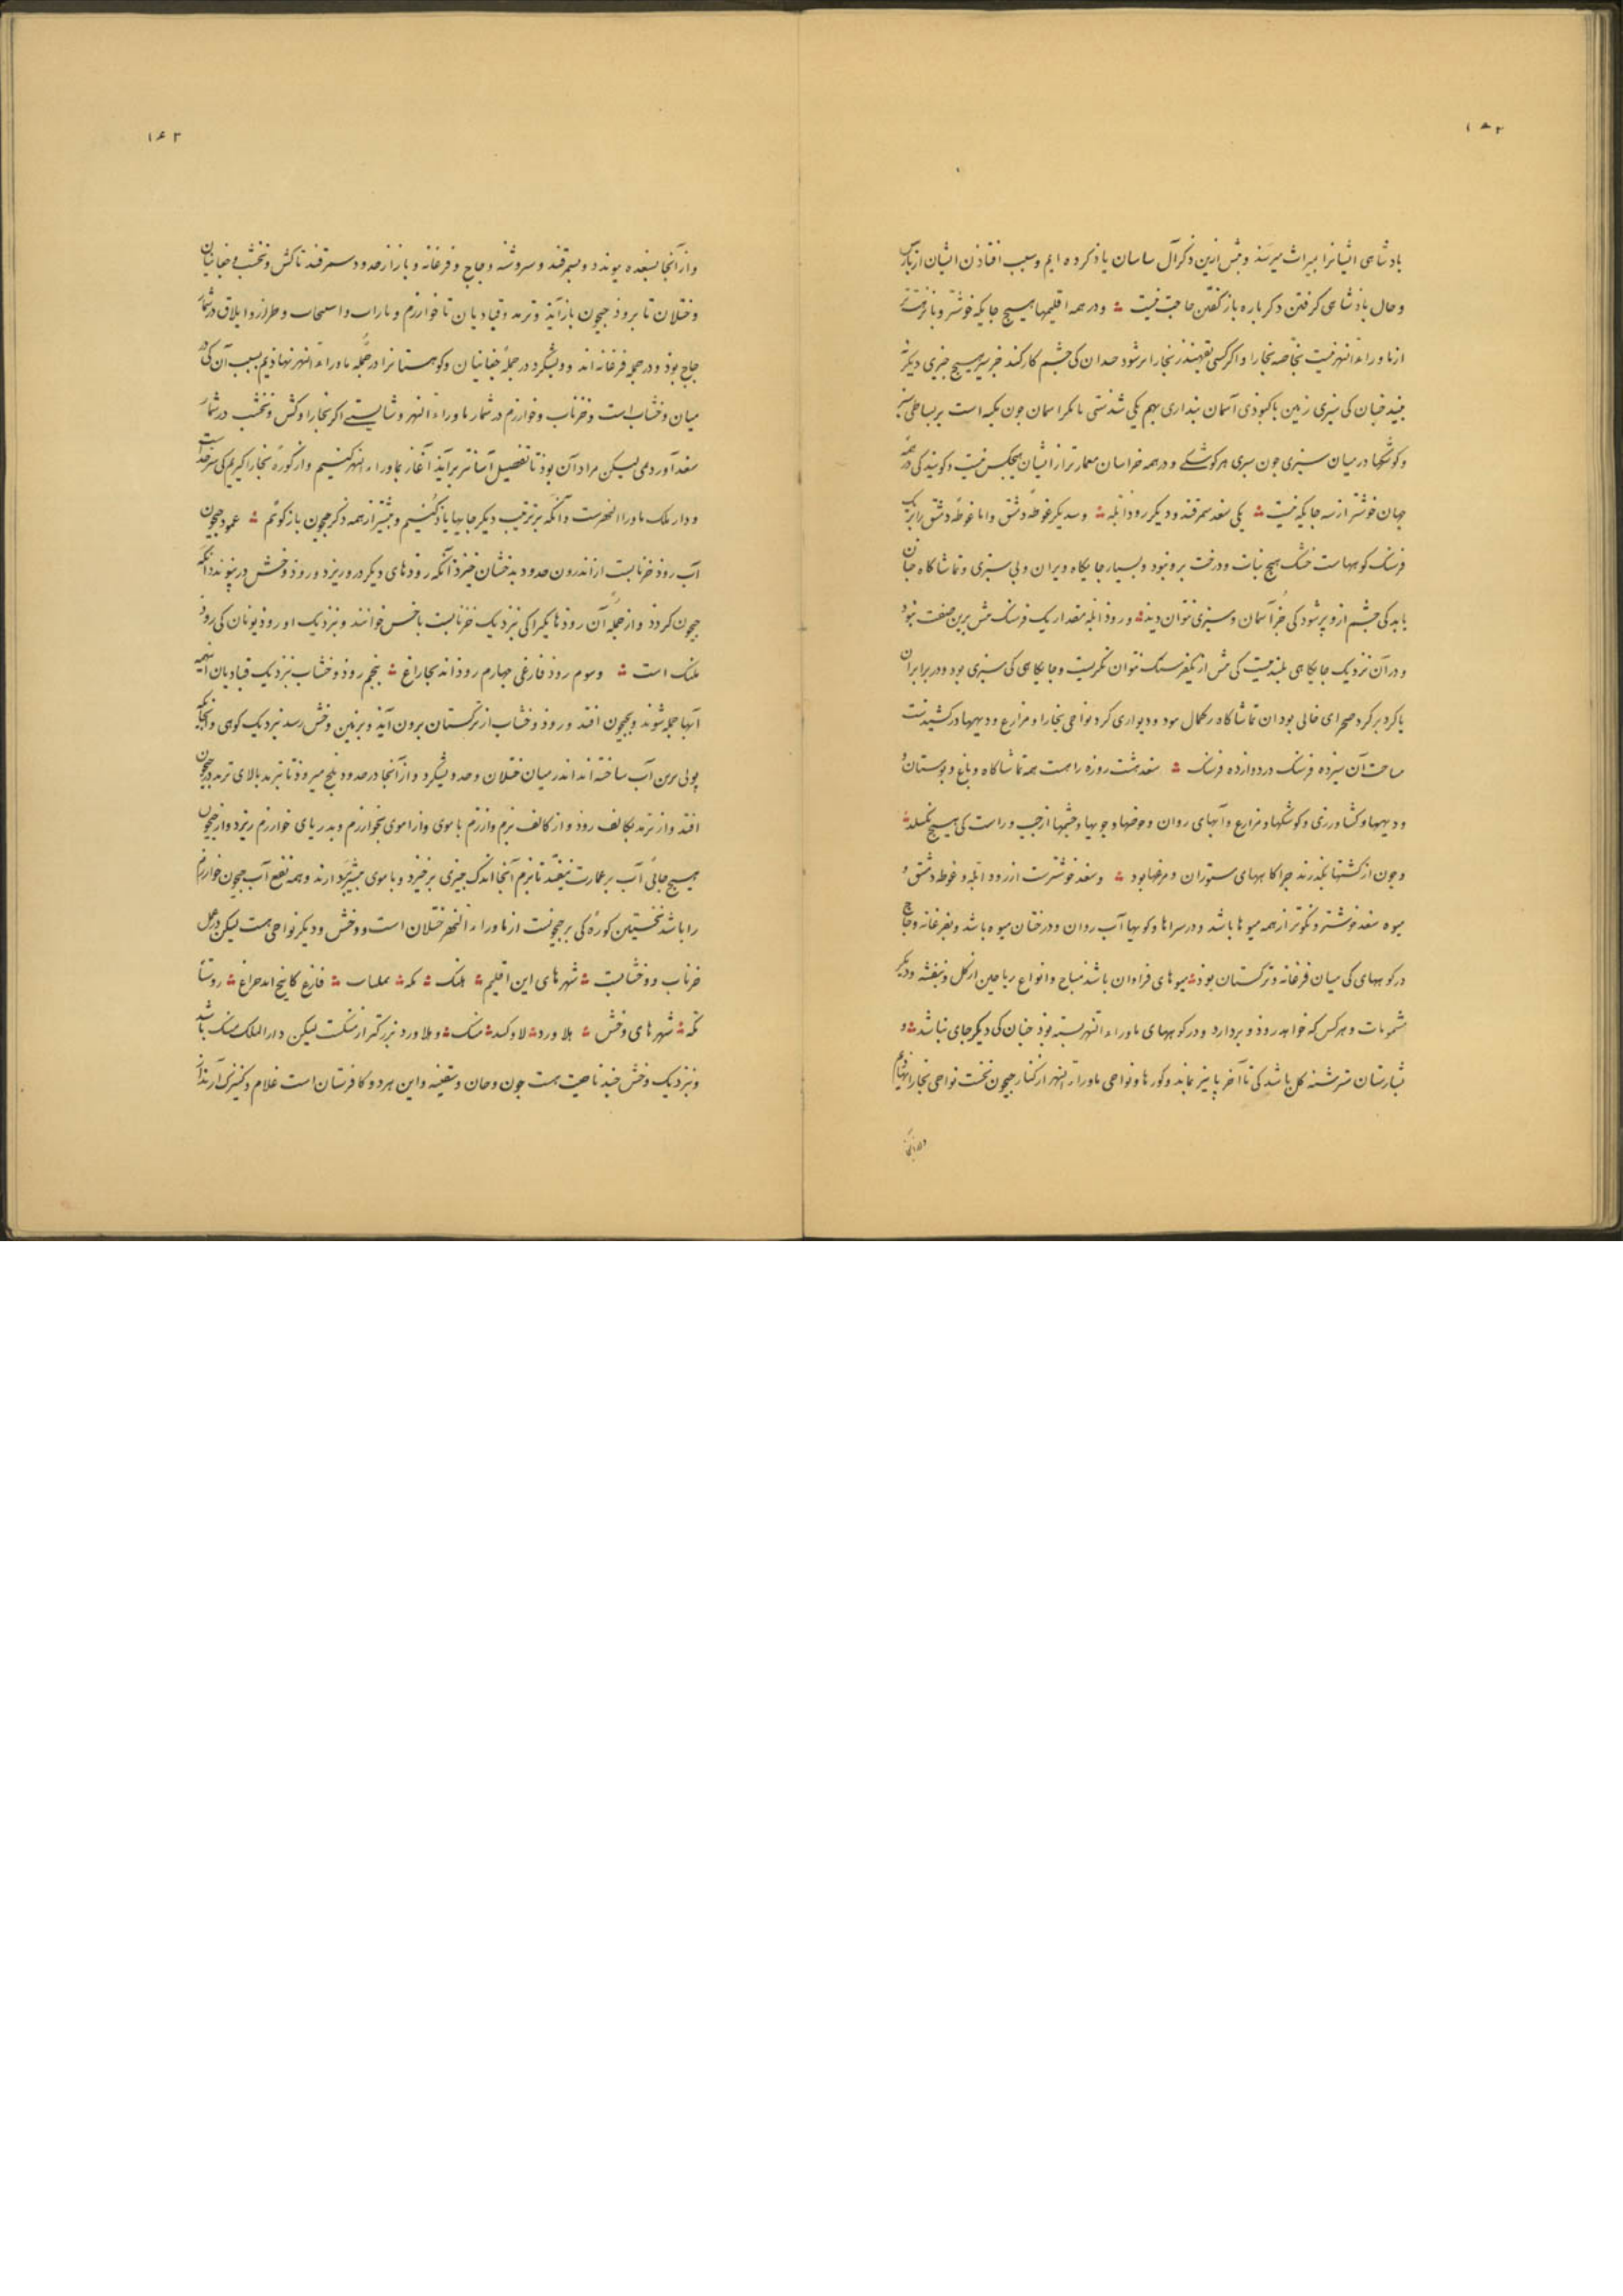 ۱۶۲
پادشاهی ایشانرا بمیراث میرسد و پیش ازین ذکر آل سامان یاد کرده ایم و سبب افتادن ایشان از پارس
و حال پادشاهی گرفتن دگر باره باز گفتن حاجت نیست و در همه اقلیمها هیچ جایگه خوشتر و با نزهت‌تر
از ماوراء النهر نیست بخاصه بخارا و اگر کسی بقهندز بخارا بر شود چندان کی چشم کار کند جز سبزی هیچ چیزی دیگر
بیند چنان کی سبزی زمین با کبودی آسمان پنداری بهم یکی شدستی
و کوشکها در میان سبزی چون و در همه خراسان معمارتر از ایشان هیچکس نیست و گویند کی در همه
جهان خوشتر از سه جایگه نیست یکی سغد سمرقند و دیگر رود ابله و سدیگر غوطه دمشق و اما غوطه دمشق را بر یک
فرسنگ کوههاست خشک هیچ نبات و درخت برو نبود و بسیار جایگاه ویران و بی سبزی و تماشاگاه چنان
باید کی چشم ازو پر شود کی جز آسمان و سبزی نتوان دید و رود ابله مقدار یک فرسنگ بیش برین صفت نبود
و در آن نزدیک جایگاهی بلند نیست کی بیش از یکفرسنگ نتوان نگریست و جایگاهی کی سبزی بود و در برابر آن
یا گرد بر گرد صحرای خالی بود آن تماشاگاه بر کمال نبود و دیواری گرد نواحی بخارا و مزارع و دیهها در کشیدست
مساحت آن سیزده فرسنگ در دوازده فرسنگ سغد هشت روزه راهست همه تماشاگاه و باغ و بوستان و
و دیهها و کشاورزی و کوشکها و مزارع و آبهای روان و حوضها و جویها و چشمها از چپ و راست کی هیچ نگسلد
و چون از کشتها بگذرند چراگاههای ستوران و مرغها بود و سغد خوشترست از رود ابله و غوطه دمشق و
میوه سغد خوشتر و نکوتر از همه میوها باشد و در سراها و کویها آب روان و درختان میوه باشد و بفرغانه و چاچ
در کوههای کی میان فرغانه و ترکستان بود میوهای فراوان باشد مباح و انواع ریاحین از گل و بنفشه و دیگر
مشمومات و هر کس که خواهد رود و بردارد و در کوههای ماوراء النهر پسته بود چنان کی دیگر جای نباشد و
گل باشد کی تا آخر پاییز بماند و کورها و نواحی ماوراء النهر از کنار جیحون نخست نواحی بخارا نهادیم
واز آنجا
۱۶۳
واز آنجا بسغد پیوندد و بسمرقند و سروشنه و چاچ و فرغانه و باز از حدود سمرقند تا کش و نخشب و چغانیان
و ختلان تا برود جیحون باز آید و ترمد و قبادیان تا خوارزم و باراب و اسبیجاب و طراز و ایلاق در شمار
چاچ بود و در جمله فرغانه اند و ویشگرد در جمله چغانیان و کوهستانرا در جمله ماوراء النهر نهادیم بسبب آن کی در
میان وخشاب است و خرناب و خوارزم در شمار ماوراء النهر و شایستی اگر بخارا و کش و نخشب در شمار
سغد آوردمی لیکن مراد آن بود تا تفصیل آسانتر برآید آغاز بماوراء النهر کنیم و از کوره بخارا گیریم کی سرحدست
و دار ملک ماوراء النهرست و آنگه بر ترتیب دیگر جایها یاد کنیم و پیشتر از همه ذکر جیحون باز گوییم عمود جیحون
آب رود خرنابست از اندرون حدود بدخشان خیزد آنگه رودهای دیگر درو ریزد و رود وخش درپیوندد آنگه
جیحون گردد و از جمله آن رودها یکی راکی نزدیک خرنابست باخس خوانند و نزدیک او رود
هلبک است و سوم رود فارغی چهارم رود اندیجاراغ پنجم رود وخشاب نزدیک قبادیان این همه
آبها جمله شوند و بجیحون افتد و رود وخشاب از ترکستان برون آید و بزمین وخش رسد نزدیک کوهی و آنجایگه
پولی برین آب ساخته اند اندر میان ختلان و حد ویشگرد و از آنجا در حدود بلخ میرود تا بترمد بالای ترمد در جیحون
افتد و از ترمد بکالف رود و از کالف بزم و از زم باموی و از آموی بخوارزم و بدریای خوارزم ریزد و از جیحون
هیچ جائی آب بر عمارت نیفتد تا بزم آنجا اندک چیزی برخیزد و باموی بیشتر بردارند و همه نفع آب جیحون خوارزم
را باشد نخستین کوره کی بر جیحونست از ماوراء النهر ختلان است و وخش و دیگر نواحی هست لیکن در عمل
خرناب و وخشابست شهرهای این اقلیم هلبک فارغ کابنج روستا
شهرهای وخش هلاورد لاوکند منک و هلاورد بزرگتر از منکست لیکن دارالملک منک باشد
و نزدیک وخش چند ناحیت هست چون وخان و سقنیه و این هر دو کافرستان است غلام و کنیزک آرند از